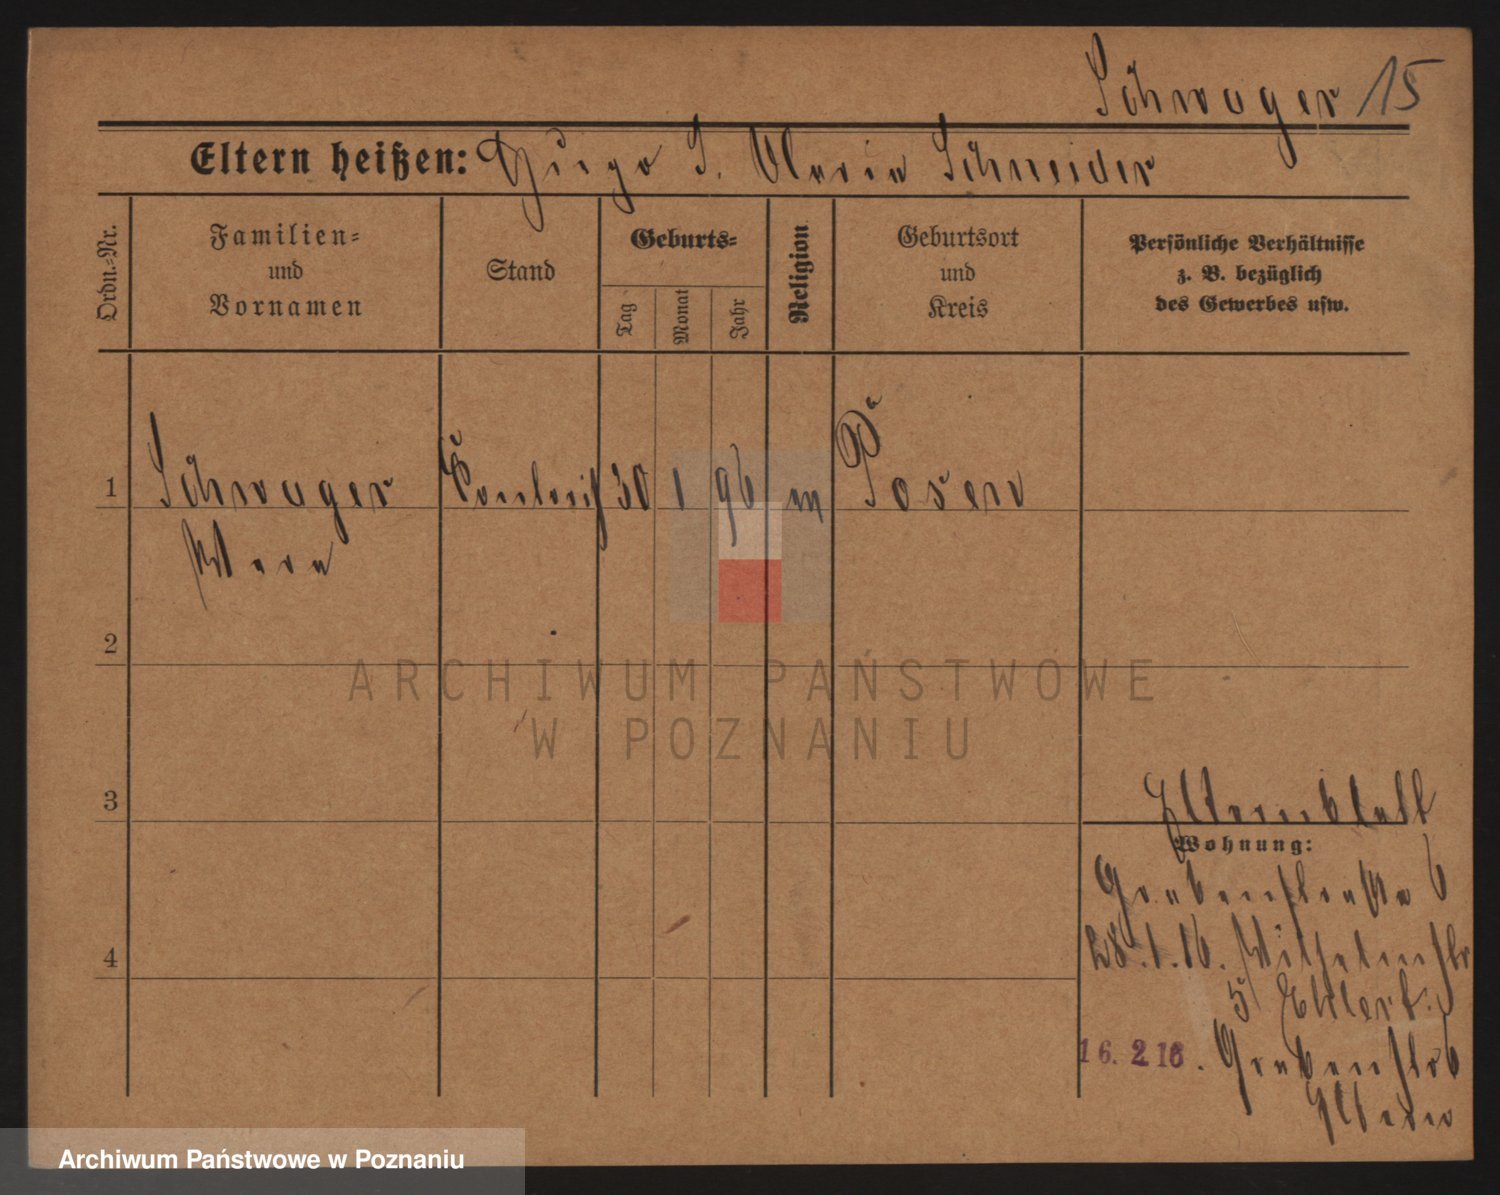 Schwager 15
Eltern heißen: Hugo u. Maria Schneider
Ordn.-Nr.
Familien-
und
Vornamen
Stand
Geburts-
Tag
Monat
Jahr
Religion
Geburtsort
und
Kreis
Persönliche Verhältnisse
z. B. bezüglich
des Gewerbes usw.
1 Schwager 30 1 96 m Posen
Wera
2
ARCHIWUM PAŃSTWOWE
W POZNANIU
3
Elternblatt
Wohnung:
Grabenstraße 6
4
28.1.16. Wilhelmstr
5 Ehlert.
16.2.16. Grabenstr 6
Eltern
Archiwum Państwowe w Poznaniu